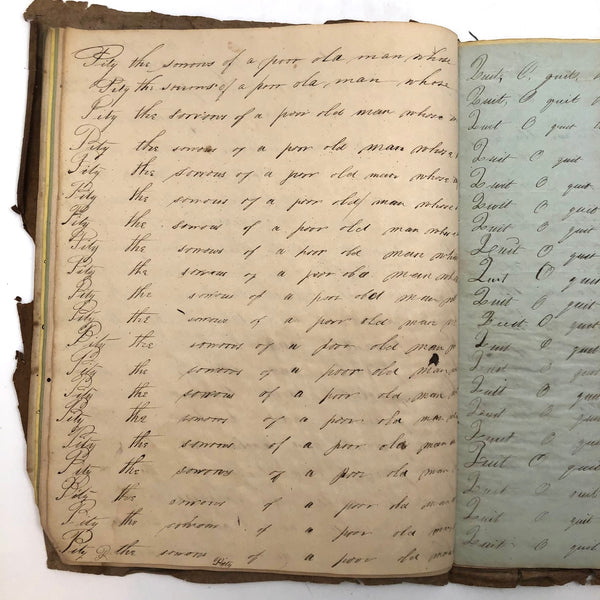 Pity the sorrows of a poor old man whose
Pity the sorrows of a poor old man whose
Pity the sorrows of a poor old man whose
Pity the sorrows of a poor old man whose
Pity the sorrows of a poor old man whose
Pity the sorrows of a poor old man whose
Pity the sorrows of a poor old man whose
Pity the sorrows of a poor old man whose
Pity the sorrows of a poor old man whose
Pity the sorrows of a poor old man
Pity the sorrows of a poor old man
Pity the sorrows of a poor old man
Pity the sorrows of a poor old man
Pity the sorrows of a poor old man
Pity the sorrows of a poor old man
Pity the sorrows of a poor old man
Pity the sorrows of a poor old man
Pity the sorrows of a poor old man
Pity the sorrows of a poor old man
Pity P the sorrows of a poor old man
Pity
Quit, O quit,
Quit, O quit
Quit O quit
Quit O quit
Quit O quit
Quit O quit
Quit O quit
Quit O quit
Quit O quit
Quit O quit
Quit O quit
Quit O quit
Quit O quit
Quit O quit
Quit O quit
Quit O quit
Quit O quit
Quit O quit
Quit O quit
Quit O quit